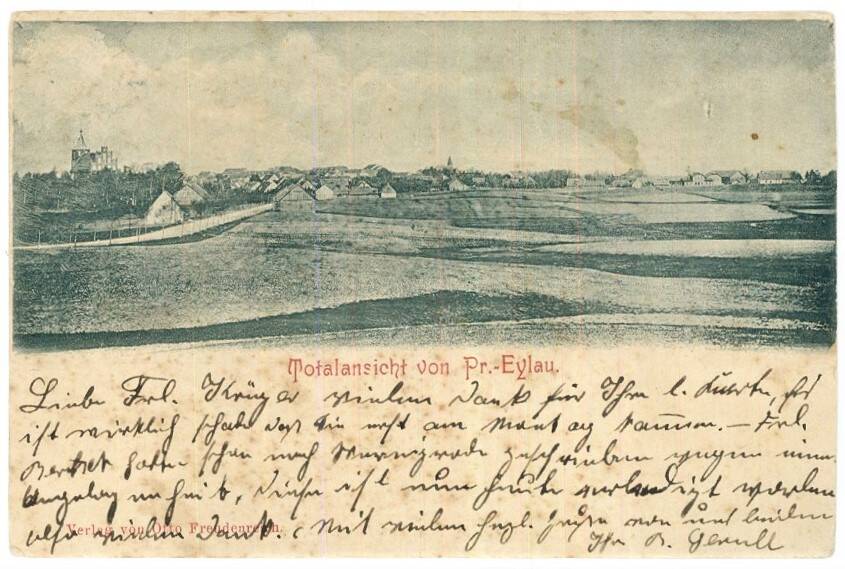 Totalansicht von Pr.-Eylau.
Liebe Frl. Krüger vielen Dank für Ihre l. Karte, es
ist wirklich schade daß Sie erst am Montag kommen. – Frl.
hatte schon nach Wernigrode geschrieben wegen einer
Angelegenheit, diese ist nun heute erledigt worden
also vielen Dank. Mit vielen herzl. Grüßen von uns beiden
Verlag von Otto Freudenreich.
Ihr